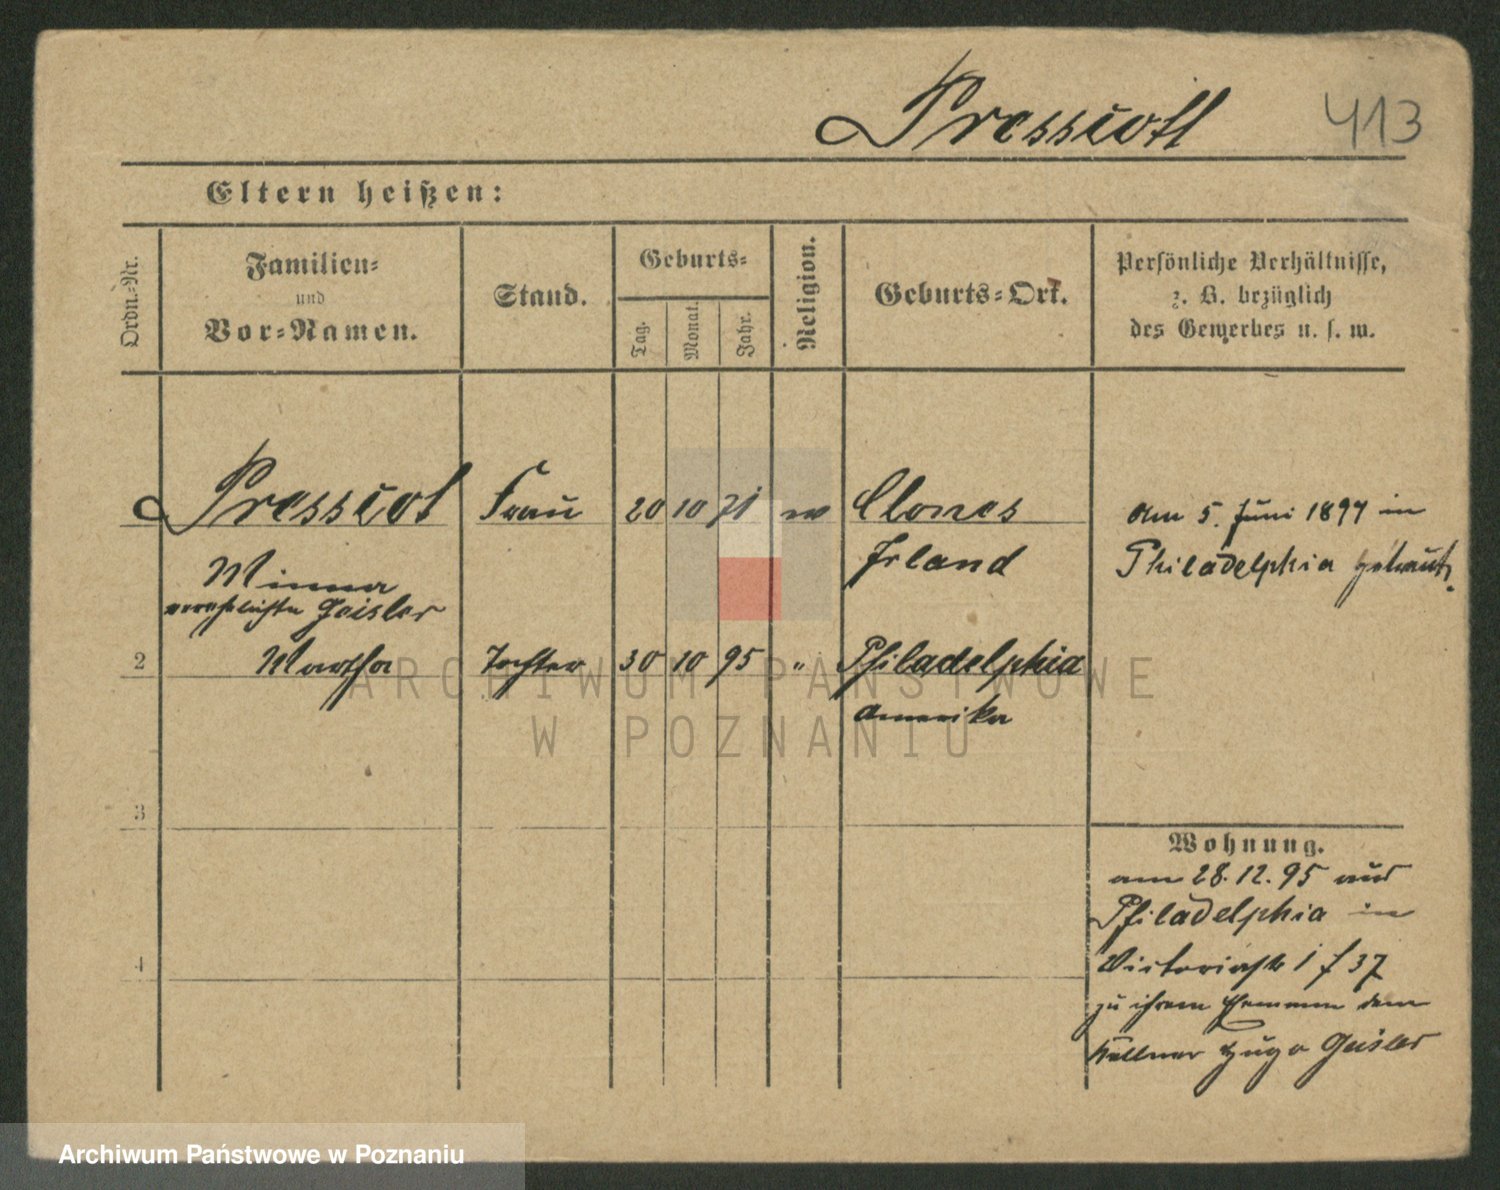 Pressiott 413
Eltern heißen:
Ordn.-Nr.
Familien-
und
Vor-Namen.
Stand.
Geburts-
Tag.
Monat.
Jahr.
Religion.
Geburts-Ort.
Persönliche Verhältnisse,
z. B. bezüglich
des Gewerbes u. s. w.
Pressiot Frau 20 10 71 Clones
Irland
Am 5. Juni 1897 in
Philadelphia getraut.
Minna
verehelichte Geisler
2 Martha Tochter 30 10 95 " Philadelphia
Amerika
3
4
Wohnung.
am 28.12.95 aus
Philadelphia in
Victoriastr 1 f 37
zu ihrem dem
Kellner Hugo Geisler
ARCHIWUM PAŃSTWOWE
W POZNANIU
Archiwum Państwowe w Poznaniu